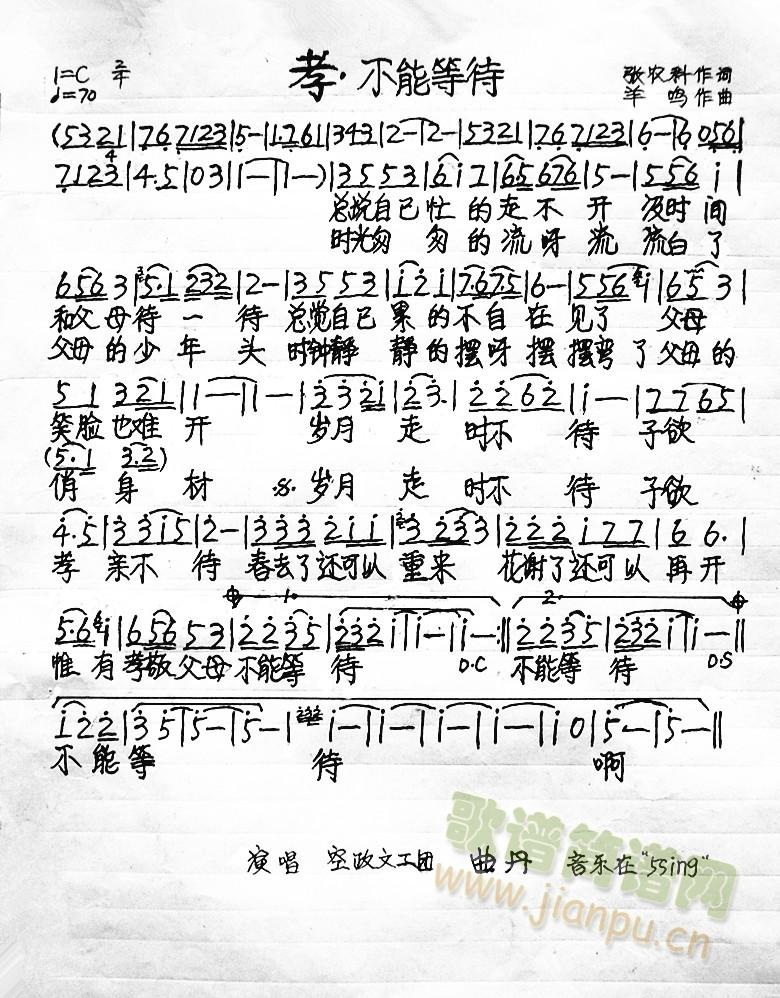 孝·不能等待
1=C 2/4
♩=70
张农科作词
羊鸣作曲
(5321|767123|5-|1761|343|2-|2-|5321|767123|6-|6056|
7123|4.5|03|1-|1-)|3553|6i7|65676|5-|556i|
总说自己忙的走不开 没时间
时光匆匆的流呀流 流白了
6563|5.1232|2-|3553|i2i|7.675|6-|556i|653|
和父母待一待 总觉自己累的不自在 见了父母
父母的少年头 时钟静静的摆呀摆 摆弯了父母的
51321|1-|1-|332i|23.|2262|i-|7765|
笑脸也难开 岁月走 时不待 子欲
(5.1 3.2)
俏身材 岁月走 时不待 子欲
4.5|33i5|2-|3332ii|3233|222i77|66.|
孝亲不待 春去了还可以重来 花谢了还可以再开
5.6i|65653|2235|232i|i-|i-:||2235|232i|i-||
1. 2.
惟有孝敬父母不能等待 D.C 不能等待 D.S
i22|35|5-|5-|i-|i-|i-|i-|i0|5-|5-||
不能等待 啊
演唱 空政文工团 曲丹 音乐在"55ing"
歌谱简谱网
www.jianpu.cn